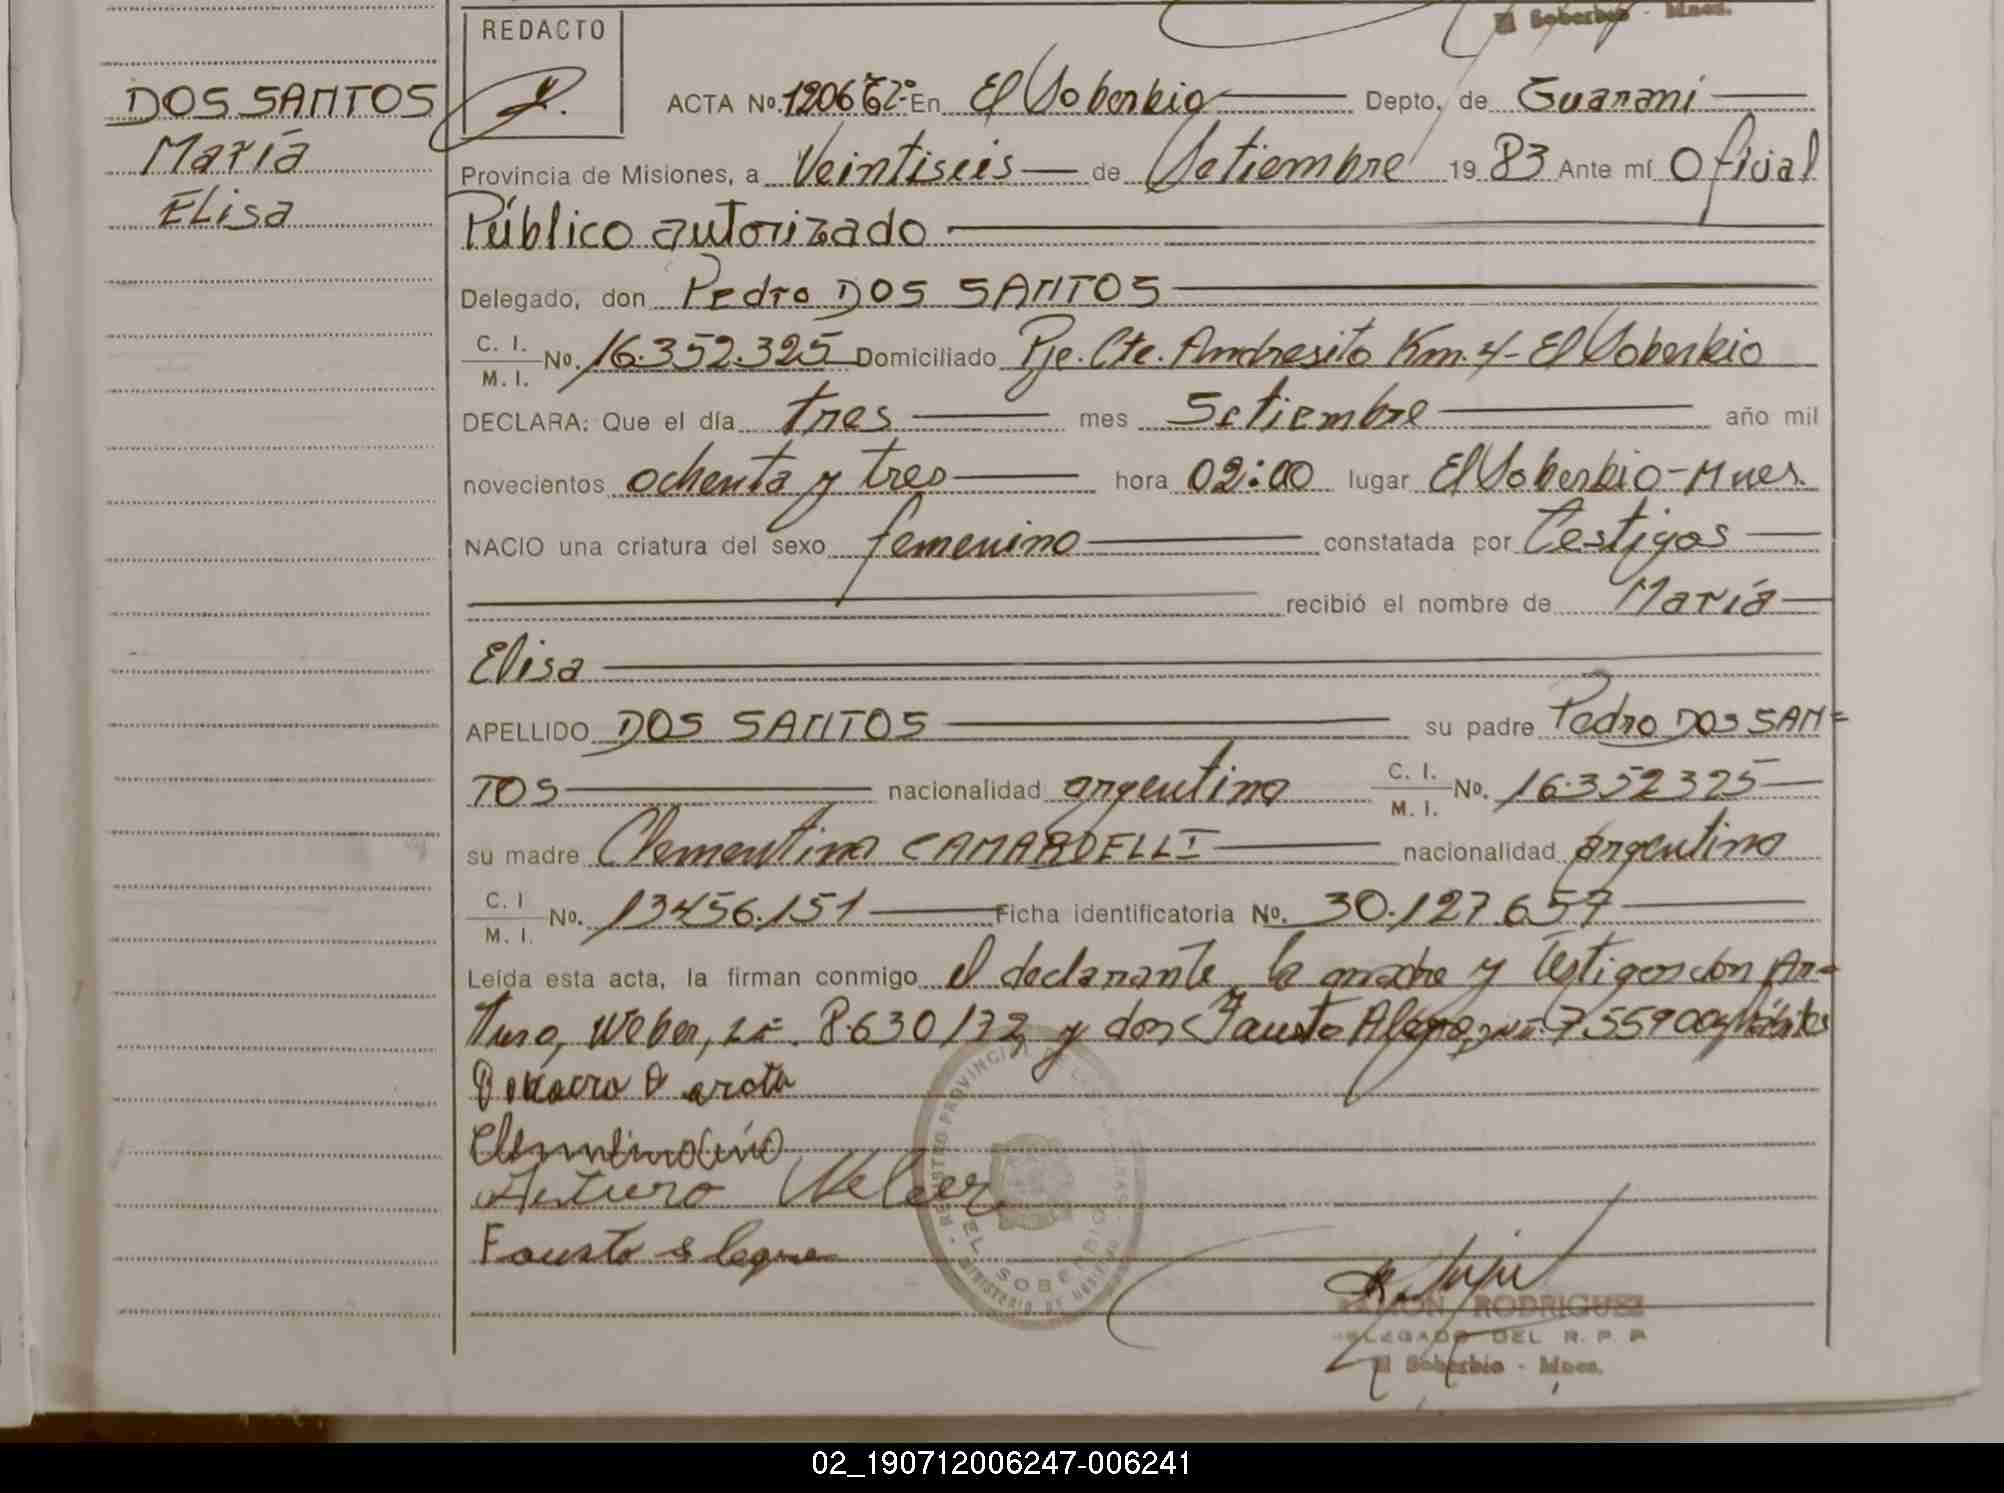 El Soberbio - Mnes.
REDACTO
DOS SANTOS
María
Elisa
ACTA No. 1206 Tº 2º En El Soberbio Depto. de Guaraní
Provincia de Misiones, a Veintiseis de Setiembre 1983 Ante mí Oficial
Público autorizado
Delegado, don Pedro DOS SANTOS
C. I. M. I. No. 16.352.325 Domiciliado Pje. Cte. Andresito Km. 4 - El Soberbio
DECLARA: Que el día tres mes Setiembre año mil
novecientos ochenta y tres hora 02:00 lugar El Soberbio - Mnes.
NACIO una criatura del sexo femenino constatada por Testigos
recibió el nombre de María
Elisa
APELLIDO DOS SANTOS su padre Pedro DOS SAN=
TOS nacionalidad argentina C. I. M. I. No. 16.352325
su madre Clementina CAMARDELLI nacionalidad argentina
C. I M. I. No. 13456.151 Ficha identificatoria No. 30.127.657
Leída esta acta, la firman conmigo el declarante, la madre y Testigos don Ar=
turo, Weber, 8.630172 y don Fausto Alegre, 7559009
Arturo Weber
Fausto alegre
REGISTRO PROVINCIAL DE LAS PERSONAS
EL SOBERBIO
MINISTERIO DE GOBIERNO
RAMON RODRIGUEZ
DELEGADO DEL R. P. P.
El Soberbio - Mnes.
02_190712006247-006241